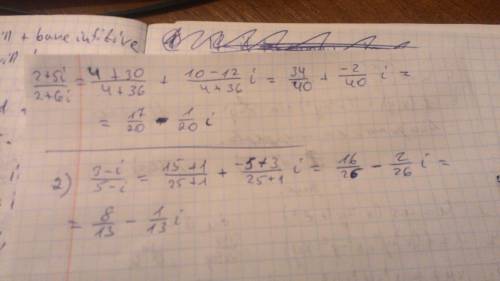 + bare infinitive
(2+5i)/(2+6i) = (4+30)/(4+36) + (10-12)/(4+36) i = 34/40 + (-2)/40 i =
= 17/20 - 1/20 i
2) (3-i)/(5-i) = (15+1)/(25+1) + (-5+3)/(25+1) i = 16/26 - 2/26 i =
= 8/13 - 1/13 i